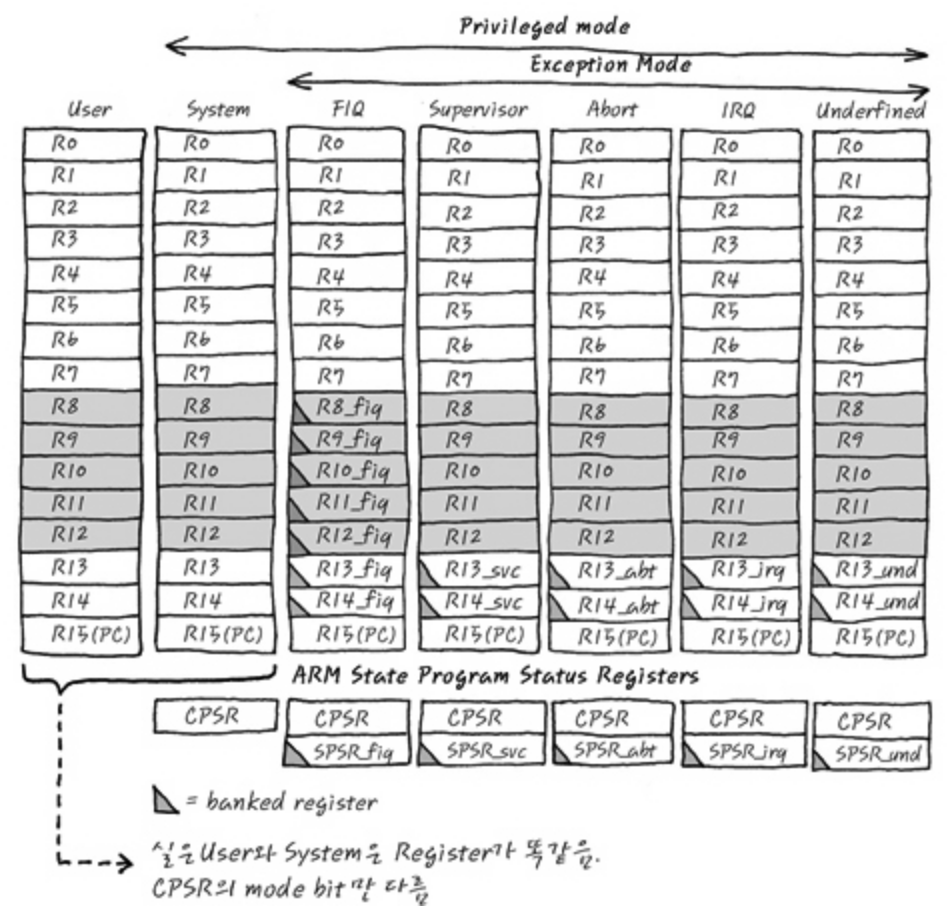 Privileged mode
Exception Mode
User System FIQ Supervisor Abort IRQ Underfined
R0 R0 R0 R0 R0 R0 R0
R1 R1 R1 R1 R1 R1 R1
R2 R2 R2 R2 R2 R2 R2
R3 R3 R3 R3 R3 R3 R3
R4 R4 R4 R4 R4 R4 R4
R5 R5 R5 R5 R5 R5 R5
R6 R6 R6 R6 R6 R6 R6
R7 R7 R7 R7 R7 R7 R7
R8 R8 R8_fiq R8 R8 R8 R8
R9 R9 R9_fiq R9 R9 R9 R9
R10 R10 R10_fiq R10 R10 R10 R10
R11 R11 R11_fiq R11 R11 R11 R11
R12 R12 R12_fiq R12 R12 R12 R12
R13 R13 R13_fiq R13_svc R13_abt R13_irq R13_und
R14 R14 R14_fiq R14_svc R14_abt R14_irq R14_und
R15(PC) R15(PC) R15(PC) R15(PC) R15(PC) R15(PC) R15(PC)
ARM State Program Status Registers
CPSR CPSR CPSR CPSR CPSR CPSR
SPSR_fiq SPSR_svc SPSR_abt SPSR_irq SPSR_und
= banked register
실은 User와 System은 Register가 똑같음.
CPSR의 mode bit만 다름